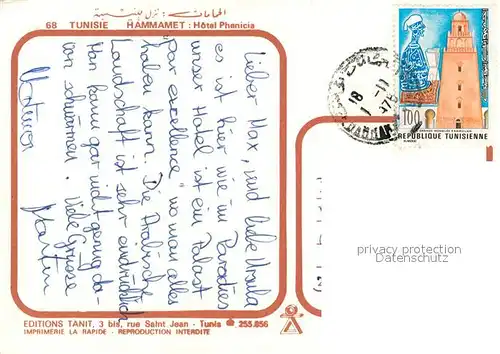 الحمامات : نزل فينيسية
68 TUNISIE HAMMAMET : Hôtel Phenicia
Lieber Max, und liebe Ursula
es ist hier wie im Paradies
unser Hotel ist ein Palast
"Par excellence" wo man alles
haben kann. Die Arabische
Landschaft ist sehr eindrücklich
Man kann gar nicht genug da-
von schwärmen. Viele Grüsse
Martin
100
REPUBLIQUE TUNISIENNE
18
1 -11
1978
privacy protection
Datenschutz
EDITIONS TANIT, 3 bis, rue Saint Jean - Tunis ☎ 255.056
IMPRIMERIE LA RAPIDE - REPRODUCTION INTERDITE